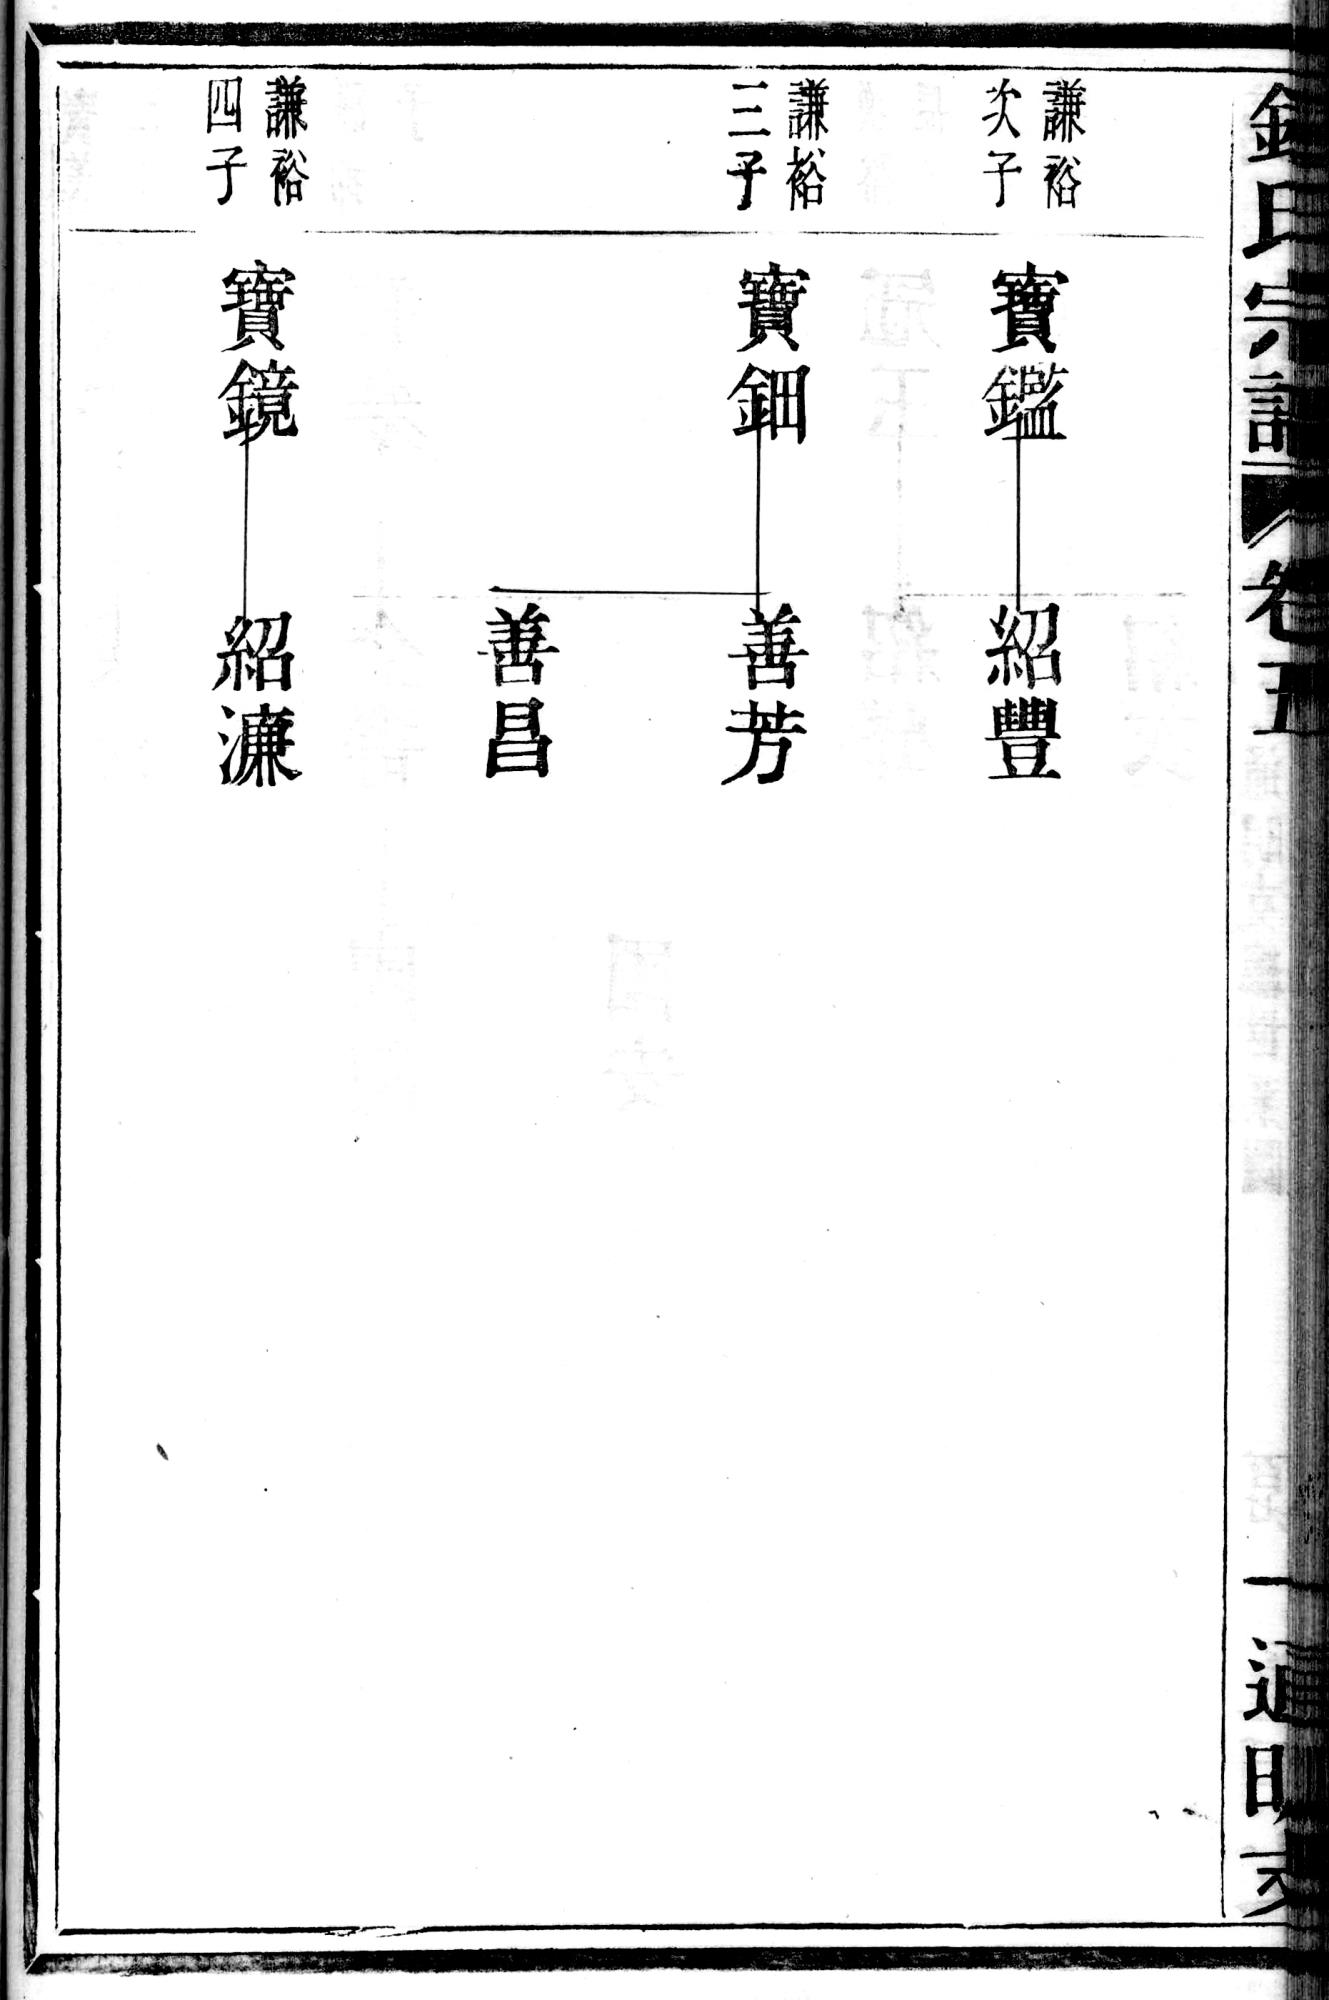 氏宗譜
卷五
一
通明支
謙裕
次子
寶鑑
紹豐
謙裕
三子
寶鈿
善芳
善昌
謙裕
四子
寶鏡
紹濂